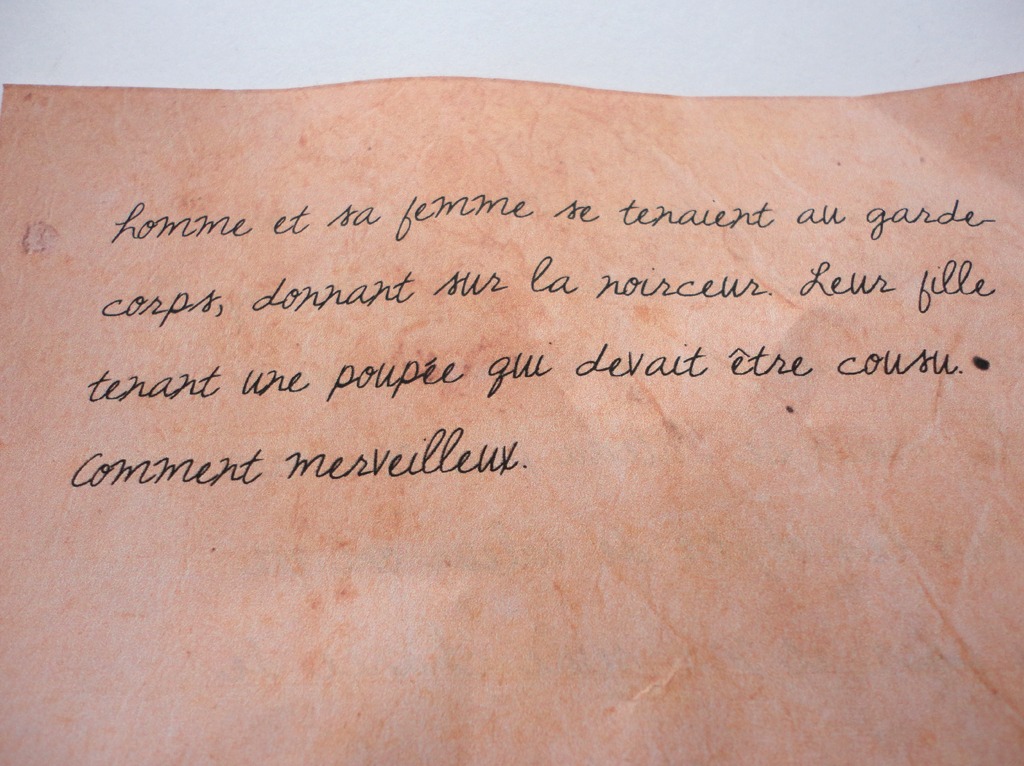 homme et sa femme se tenaient au garde-
corps, donnant sur la noirceur. Leur fille
tenant une poupée qui devait être cousu.
Comment merveilleux.